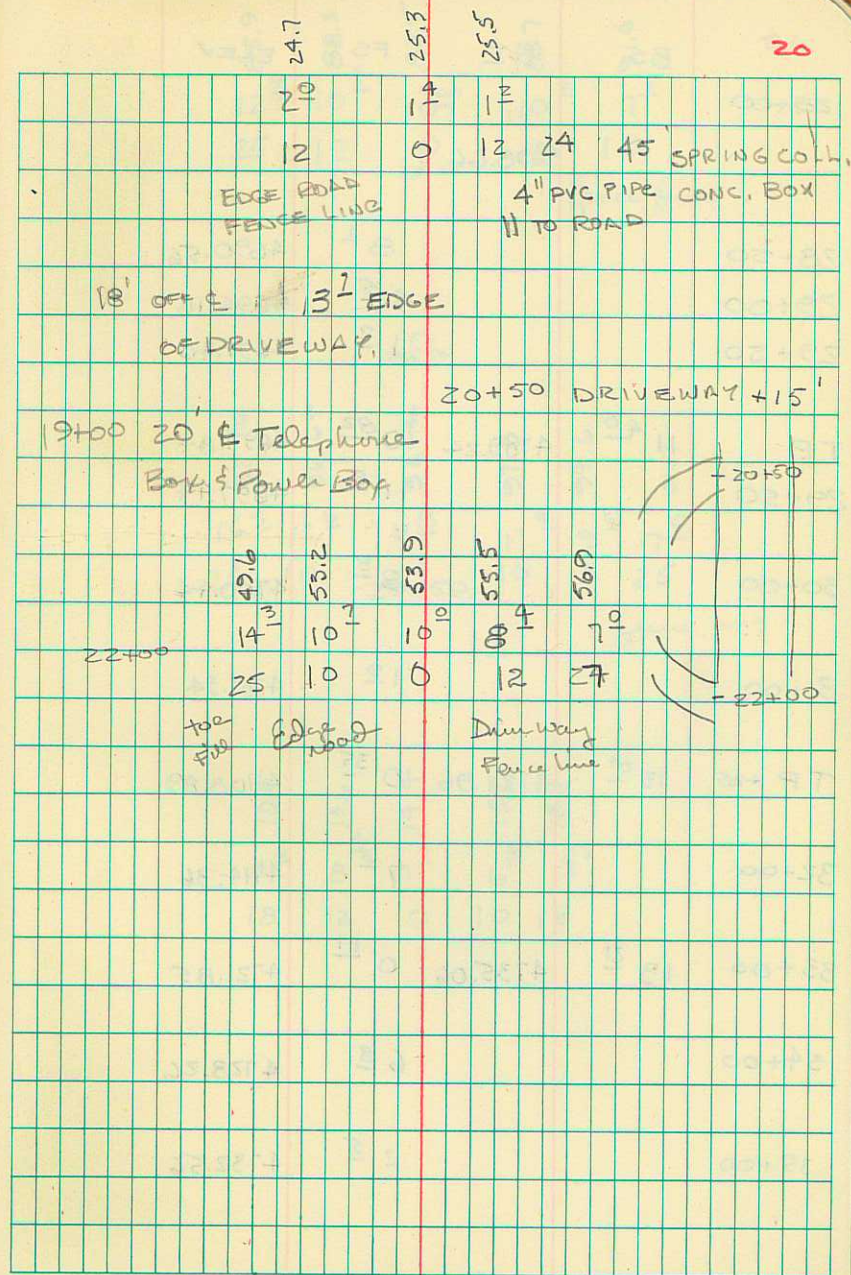 20
24.7 25.3 25.5
2⁰ 1⁴ 1²
12 0 12 24 45' SPRING COLL.
EDGE ROAD 4" PVC PIPE CONC. BOX
FENCE LINE || TO ROAD
18' OFF ℄ 13¹ EDGE
OF DRIVEWAY.
20+50 DRIVEWAY +15'
19+00 20' ℄ Telephone
Box & Power Box
20+50
49.6 53.2 53.9 55.5 56.9
14³ 10⁷ 10⁰ 8⁴ 7⁰
22+00
25 10 0 12 27
22+00
toe Edge Driveway
Fill road Fence line